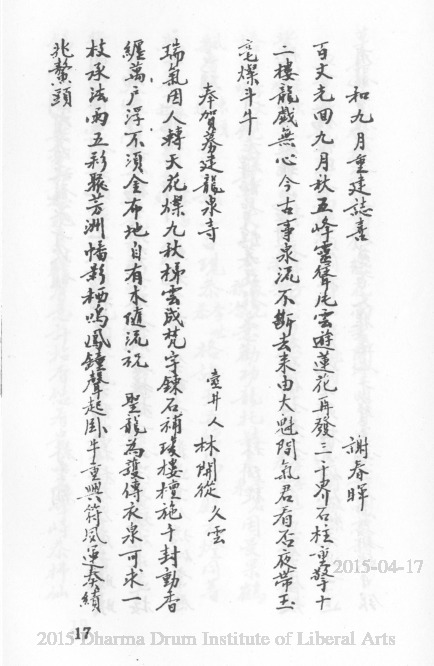 和九月重建誌喜 謝春暉
百丈光回九月秋五峰靈聳瓦雲遊蓮花再發三千界石柱重擎十
二樓龍戲無心今古事泉流不斷去來由大魁閣氣君看否夜帶玉
毫燦斗牛
奉賀募建龍泉寺 壺井人 林開從 久雲
瑞氣因人轉天花燦九秋梯雲成梵字鍊石補瓊樓檀施千封動香
纏萬戶浮不須金布地自有木隨流祝 聖龍為護傳衣泉可求一
枝承法雨五彩聚芳洲幡影栖鳴鳳鐘聲起臥牛重興符風運奏績
兆鰲頭
17
2015-04-17
2015 Dharma Drum Institute of Liberal Arts